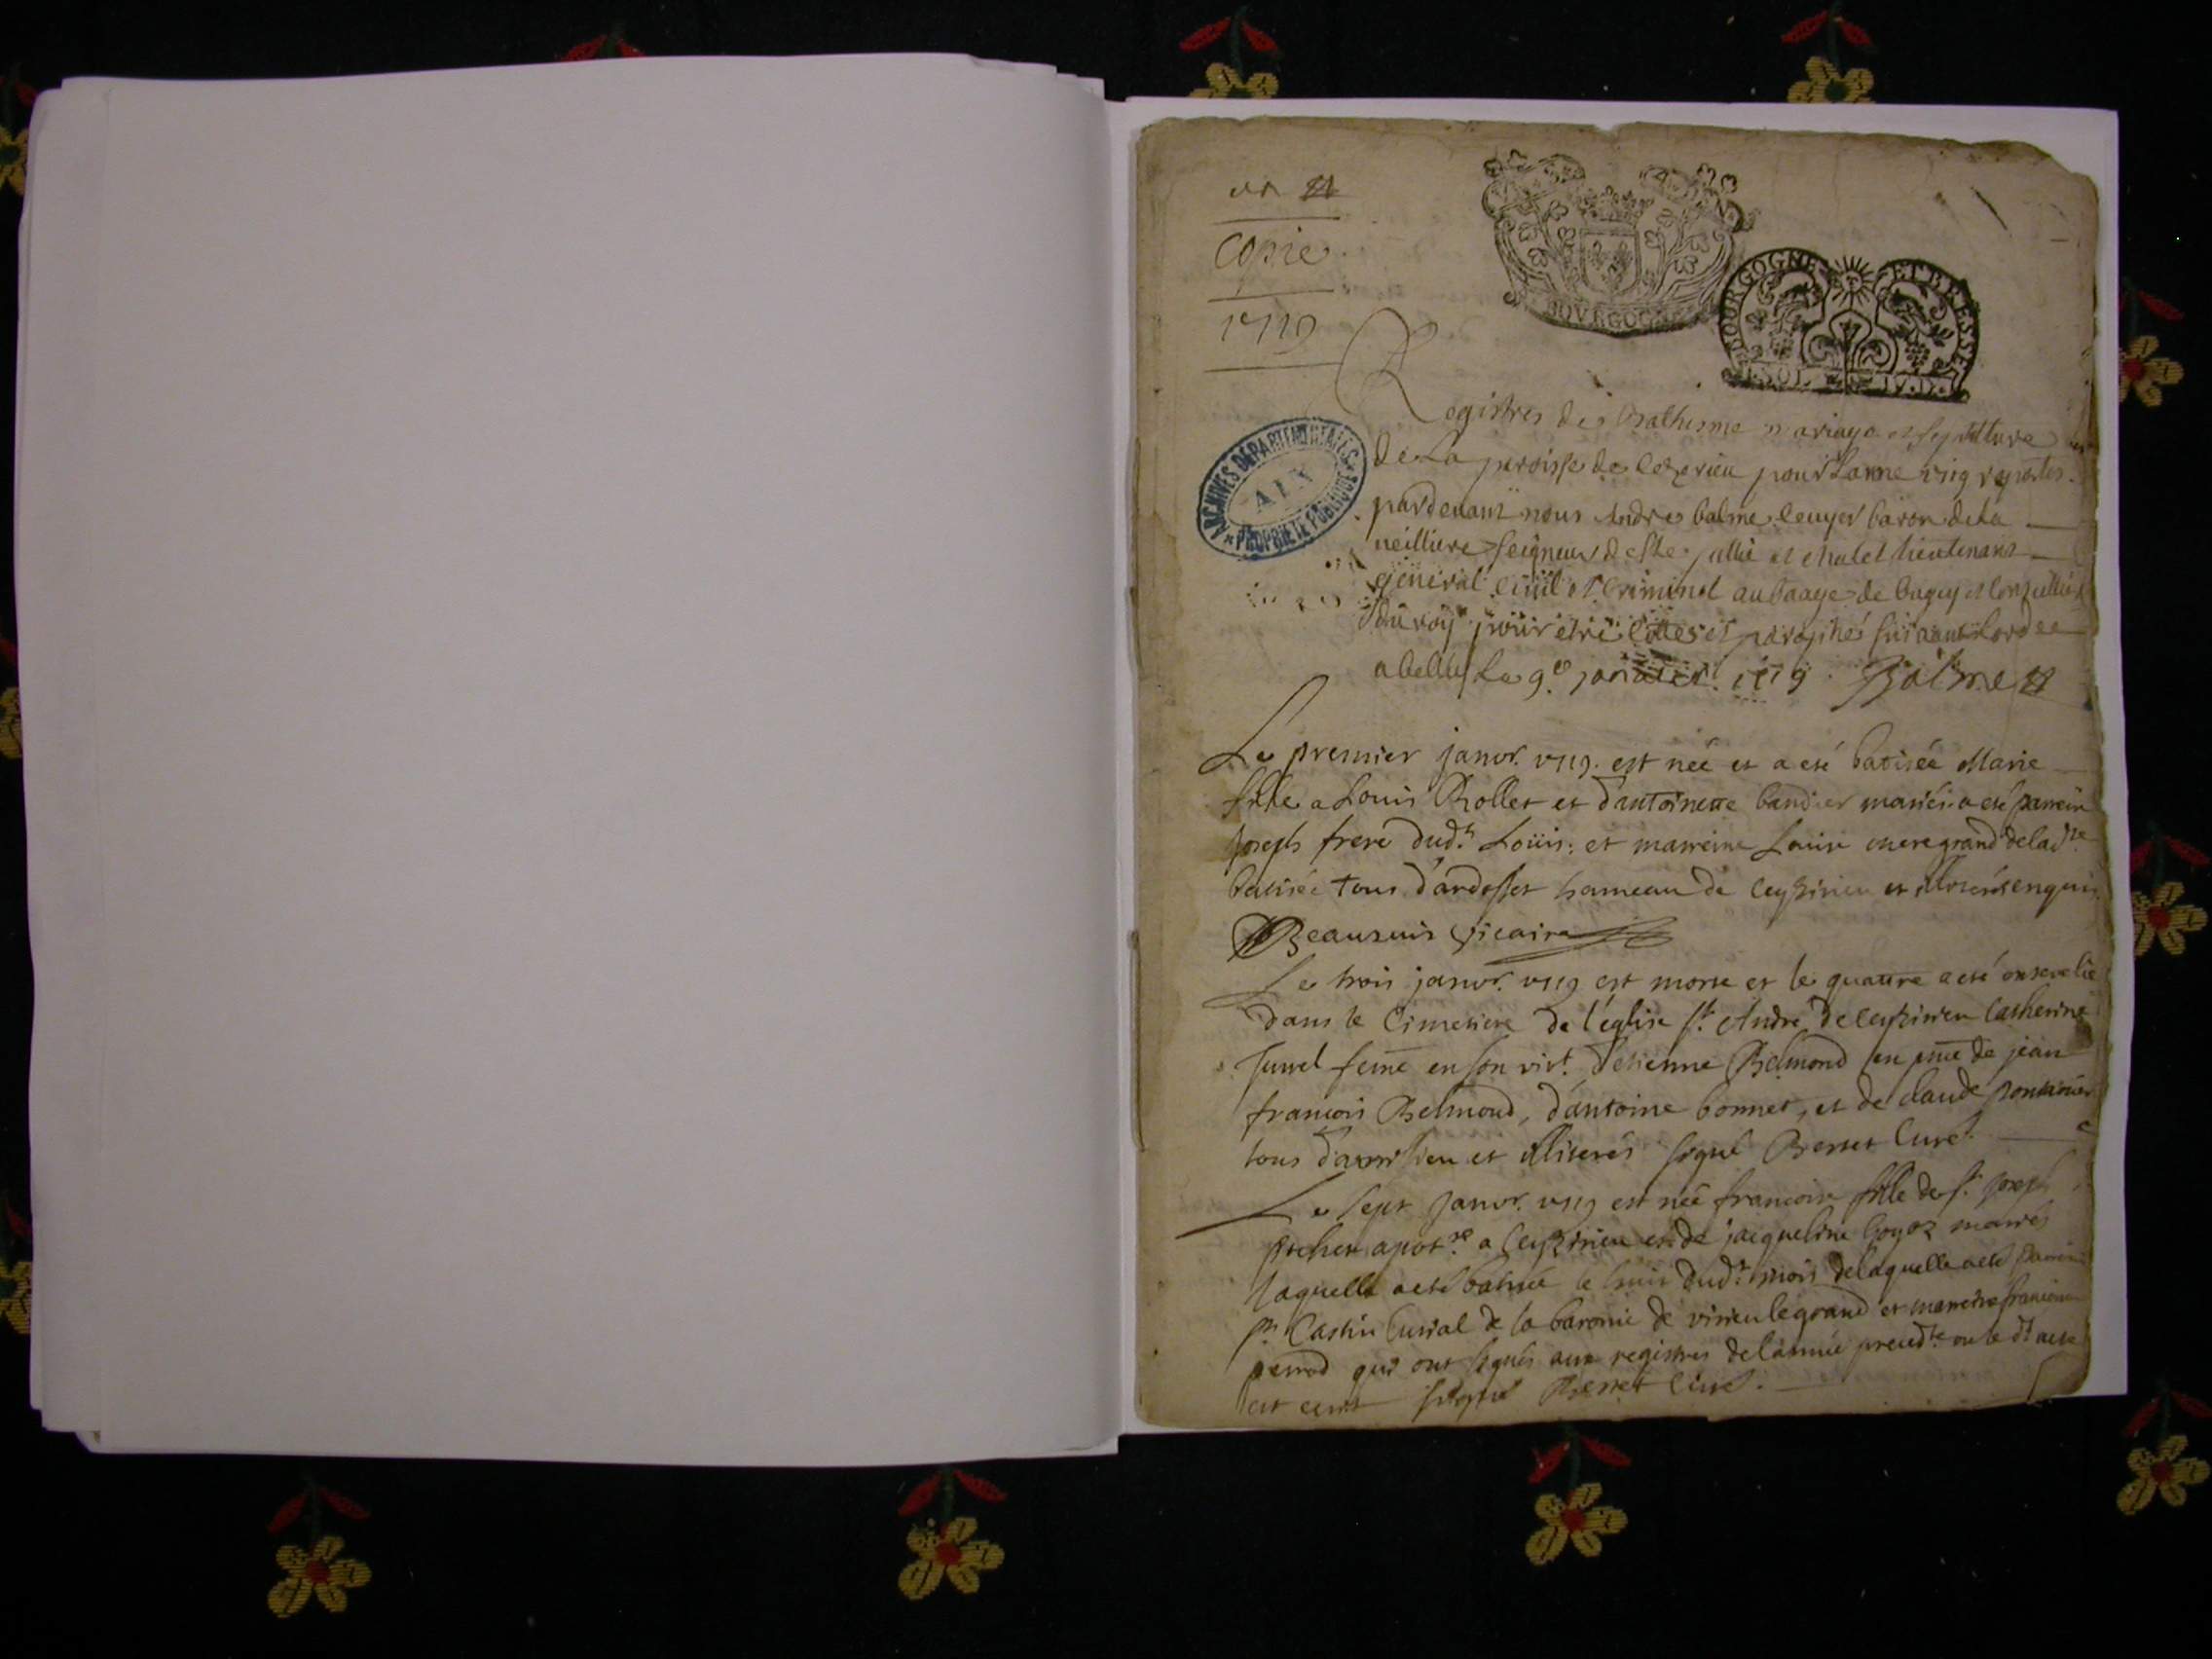 un
Copie
1719
BOURGOGNE
BOURGOGNE ET BRESSE
SOL
ARCHIVES DEPARTEMENTALES
AIN
PROPRIETE PUBLIQUE
Registres des Bathesme mariage et sepulture
de La paroisse de Ceyzerieu pour Lanne
pardevant nous Andre balme Ecuyer baron de la
seigneur de Ste jullie et chatel Lieutenant
general civil et Criminel au de bugey et Conseiller
du roy pour etre Cottes et paraphés suivant Lordce
a belley Le 9e janvier 1719 Balme
Le premier janvr. 1719. est née et a eté batisée Marie
fille a Louis Rollet et d'antoinette bandier mariés a eté parrein
joseph frere dud.t Loüis. et marreine Louise mere grand de lad.te
batisée tous d'ardosset hameau de Ceyzirieu et illiterés enquis
Beausuis vicaire
Le trois janvr. 1719 est morte et le quattre a eté ensevelie
dans le Cimetiere de l'église St. André de Ceyzirieu Catherine
feme en son viv.t d'etienne Belmond en pnce de jean
francois Belmond, d'antoine bonnet, et de claude
tous d'avrissieu et illiterés signé Berret Curé.
Le sept janvr. 1719 est née francoise fille de sr. joseph
apot.re a Ceyzirieu et de jacqueline goyoz mariés
laquelle a eté batisée le huit dud.t mois de laquelle a eté parrein
Castin Curial de la baronie de virieu le grand et marreine francoise
perrod qui ont signés aux registres de l'année preced.te ou le d.t acte
est ecrit signé Berret Curé.